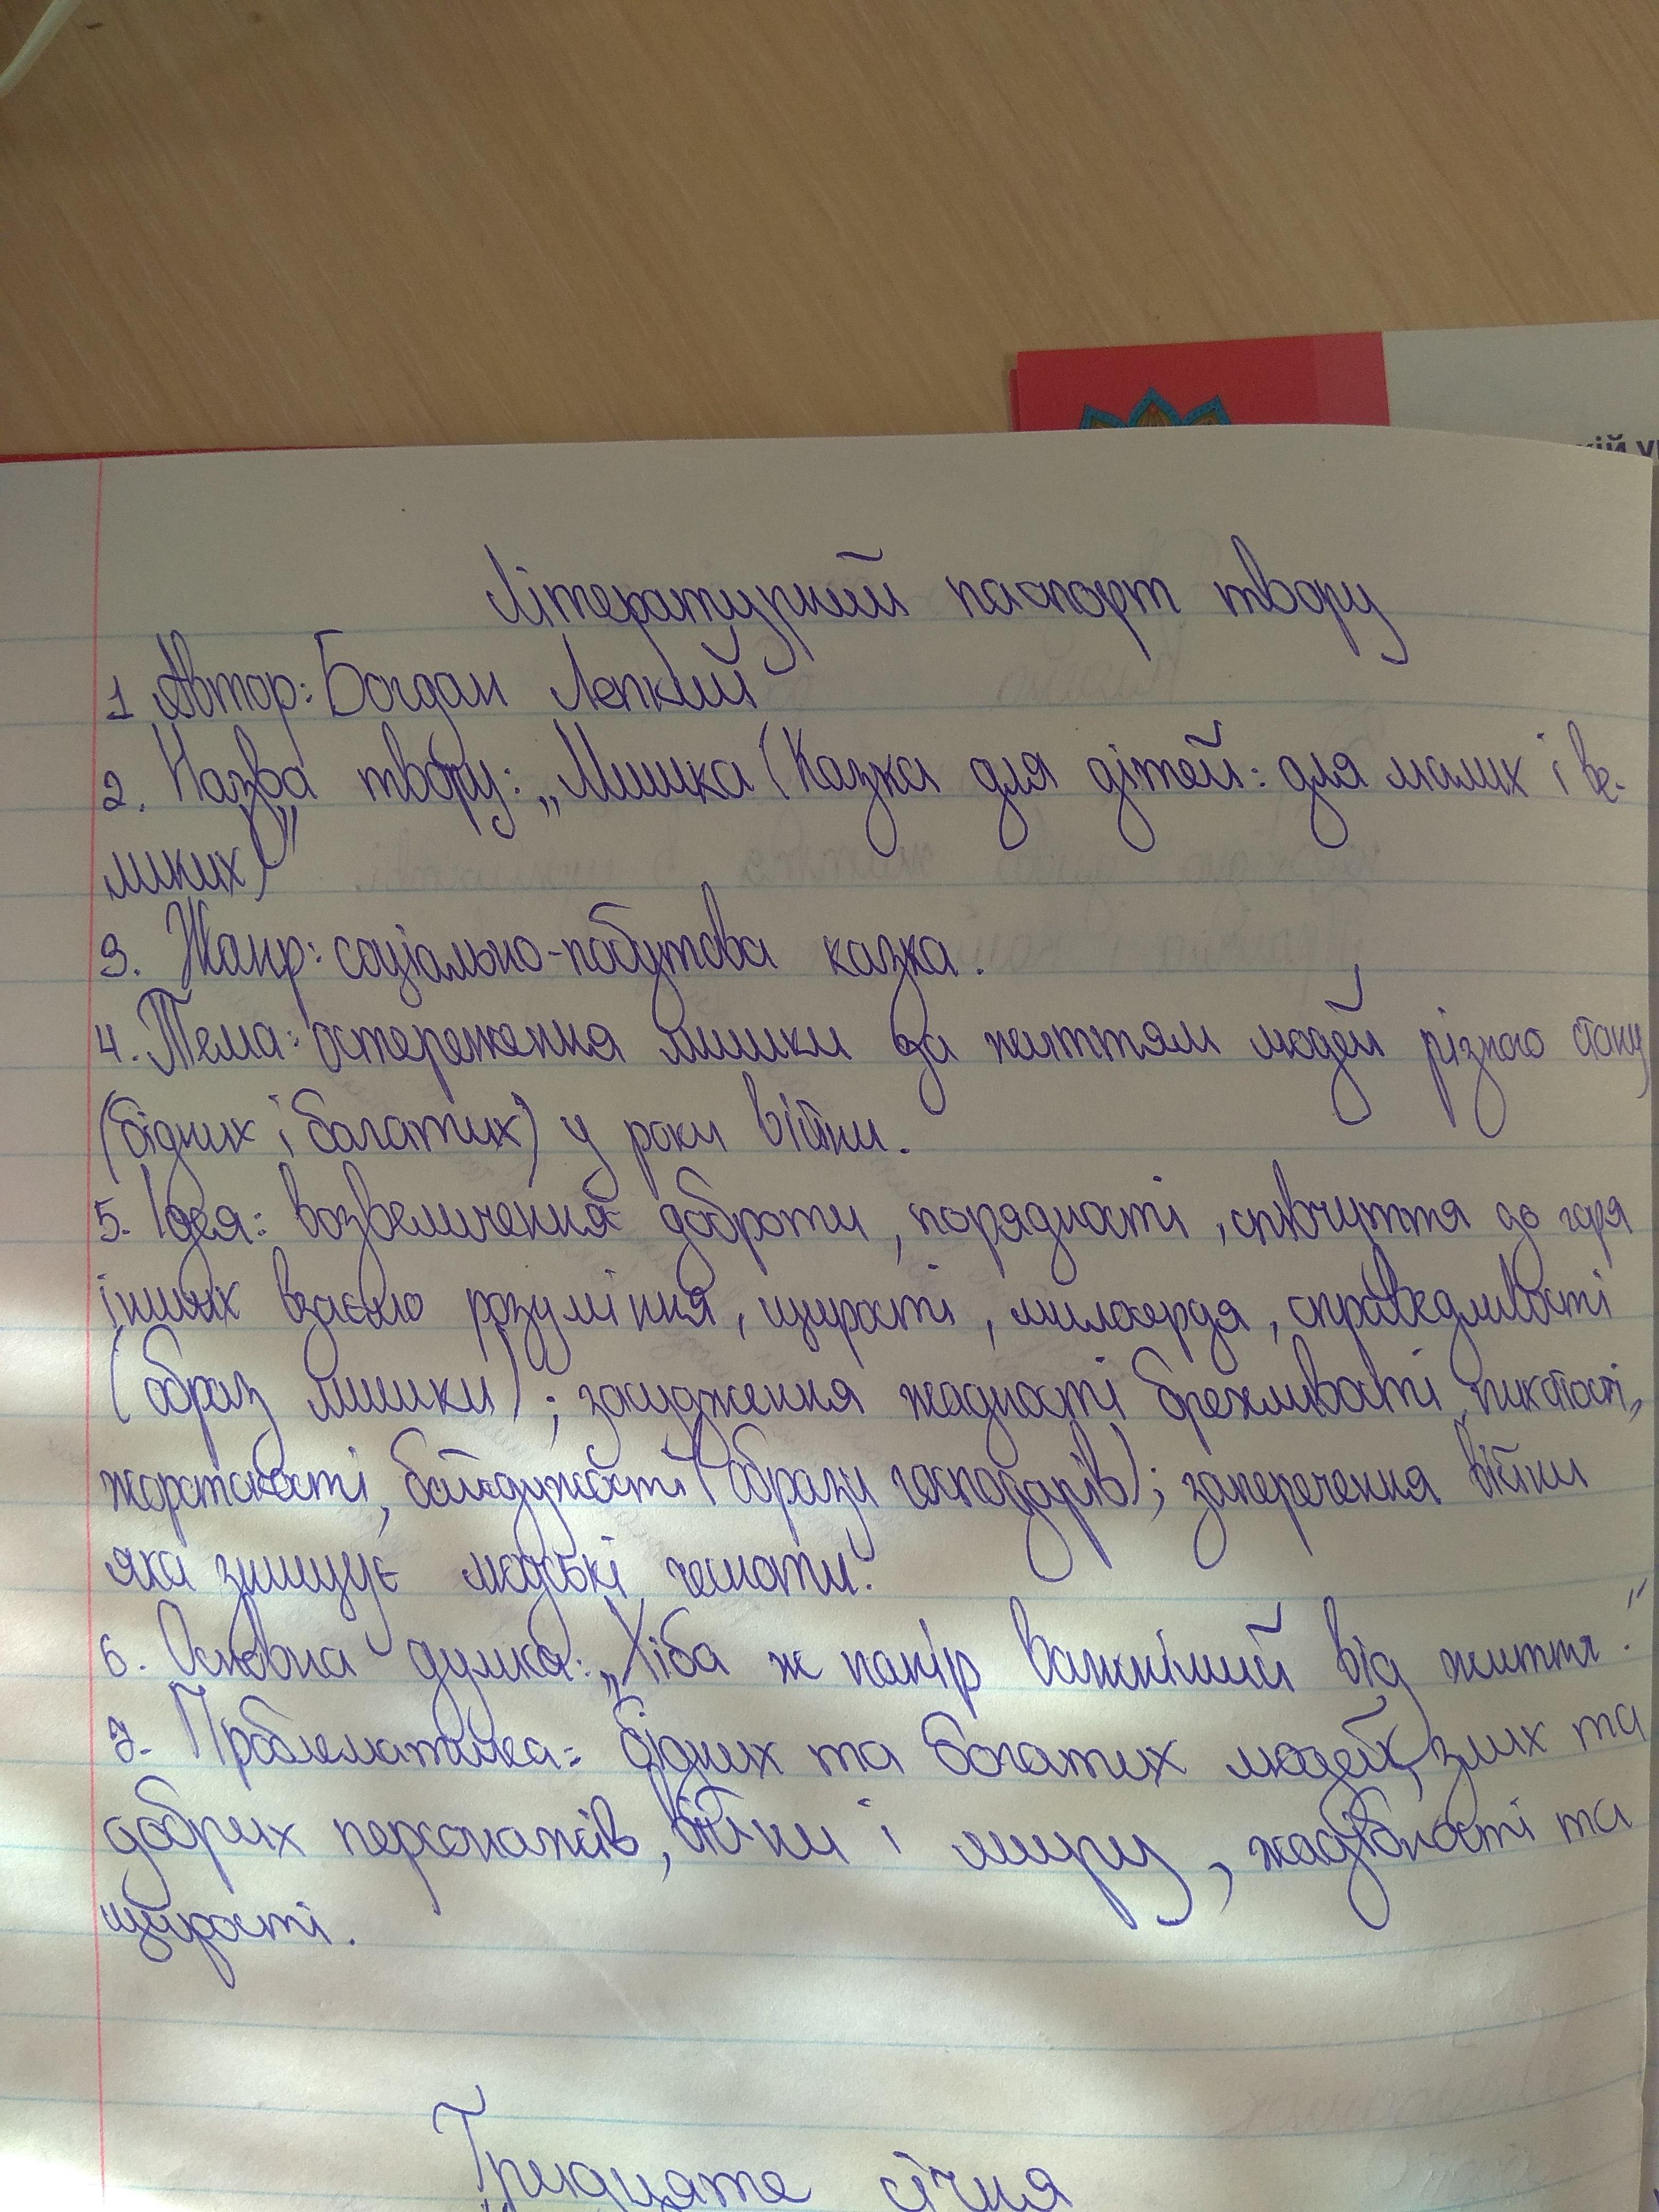 кій у
Літературний паспорт твору
1 Автор: Богдан Лепкий
2. Назва твору: „Мишка (Казка для дітей: для малих і ве-
ликих)"
3. Жанр: соціально-побутова казка.
4. Тема: остереження мишки за життям людей різного стану
(бідних і багатих) у роки війни.
5. Ідея: возвеличення доброти, порядності, співчуття до горя
інших взаємо розуміння, щирості, милосердя, справедливості
(образ мишки); засудження жадності брехливості, пихатості,
жорстокості, байдужості (образи господарів); заперечення війни
яка знищує людські
6. Основна думка: „Хіба ж папір важніший від життя."
7. Проблематика: бідних та богатих людей, злих та
добрих персонажів, війни і миру, жадібності та
щирості.
Тридцяте січня